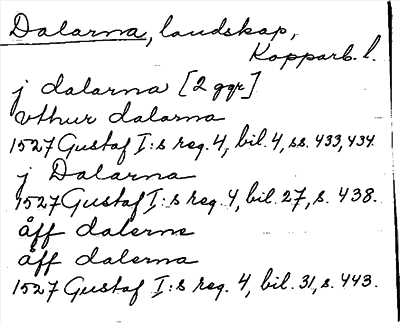 Dalarna, landskap,
Kopparb. l.
j dalarna [2 ggr]
vthur dalarna
1527 Gustaf I:s reg. 4, bil. 4, ss. 433, 434.
j Dalarna
1527 Gustaf I:s reg. 4, bil. 27, s. 438.
åff dalerne
åff dalerna
1527 Gustaf I:s reg. 4, bil. 31, s. 443.